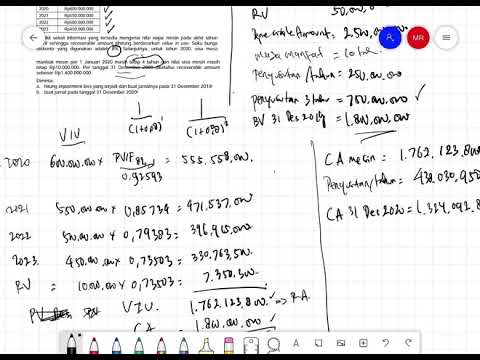 2020 Rp600.000.000
2021 Rp550.000.000
2022 Rp500.000.000
2023 Rp450.000.000
sebait informasi yang tersedia mengenai nilai wajar mesin pada akhir tahun
sehingga recoverable amount dihitung berdasarkan value in use. Suku bunga
diskonto yang digunakan adalah 8%. Selanjutnya, untuk tahun 2020, sisa masa
manfaat mesin per 1 Januari 2020 masih tetap 4 tahun dan nilai sisa mesin masih
tetap Rp10.000.000. Per tanggal 31 Desember 2020 diketahui recoverable amount
sebesar Rp1.400.000.000.
Diminta:
a. hitung impairment loss yang terjadi dan buat jurnalnya pada 31 December 2019!
b. buat jurnal pada tanggal 31 December 2020!
RV 50,000,000
Amounts 2,500,000,000
masa manfaat = 10 tahun
penyusutan /tahun = 250,000,000
penyusutan 3 tahun = 700,000,000 ✓
BV 31 Des 2019 = 1.800,000,000
MR
VIU
1 1
(1+0,08)¹ (1+0,08)²
2020 600.000.000 x PVIF 8% = 555.558,000
0,92593
2021 550,000,000 x 0,85734 = 471.537,000
2022 500,000,000 x 0,79383 = 396,915,000
2023 450.000.000 x 0,73503 = 330.763,500
RV = 10.000,000 x 0,73503 = 7.350,300
VIU 1.762.123,800 => RA
CA 1.800,000,000 ✓
CA mesin = 1.762.123,800
Penyusutan/tahun = 438,030,950
CA 31 Des 2020 = 1.324,092,8